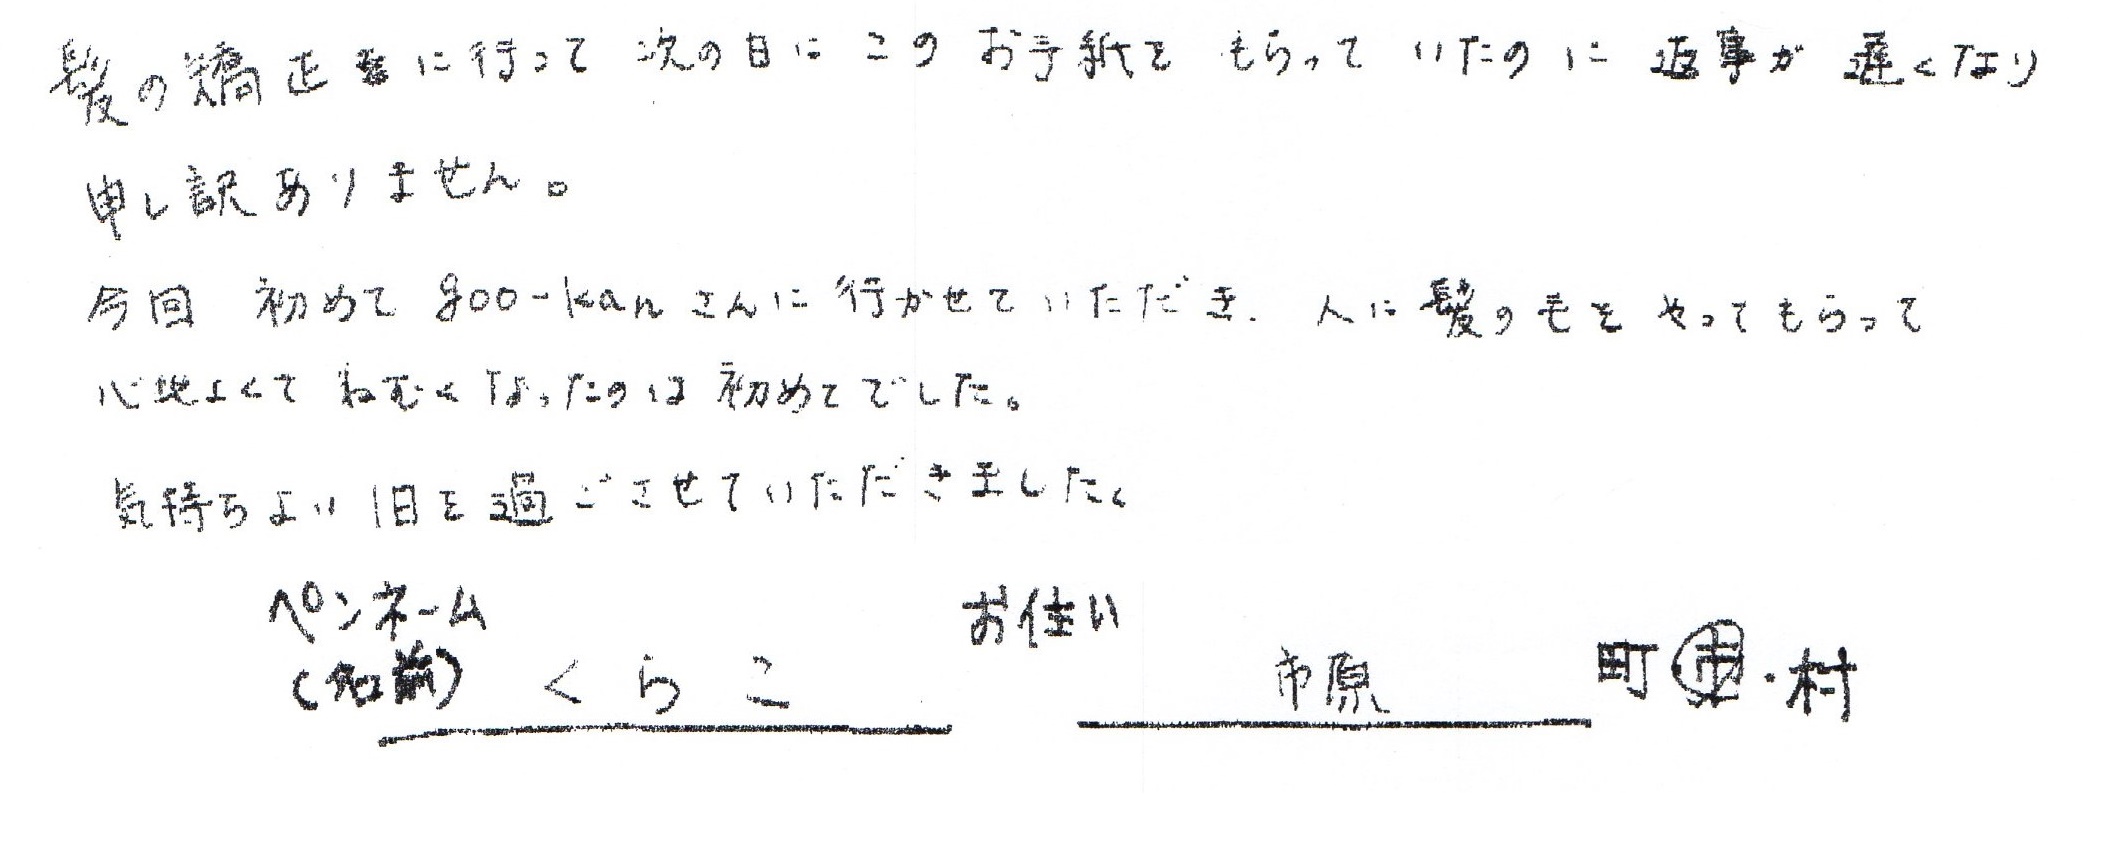 髪の矯正に行って次の日にこのお手紙をもらっていたのに返事が遅くなり
申し訳ありません。
今回 初めてgoo-kanさんに行かせていただき、人に髪の毛をやってもらって
心地よくてねむくなったのは初めてでした。
気持ちよい1日を過ごさせていただきました。
ペンネーム
(名前) くらこ
お住い
市原 町 市・村